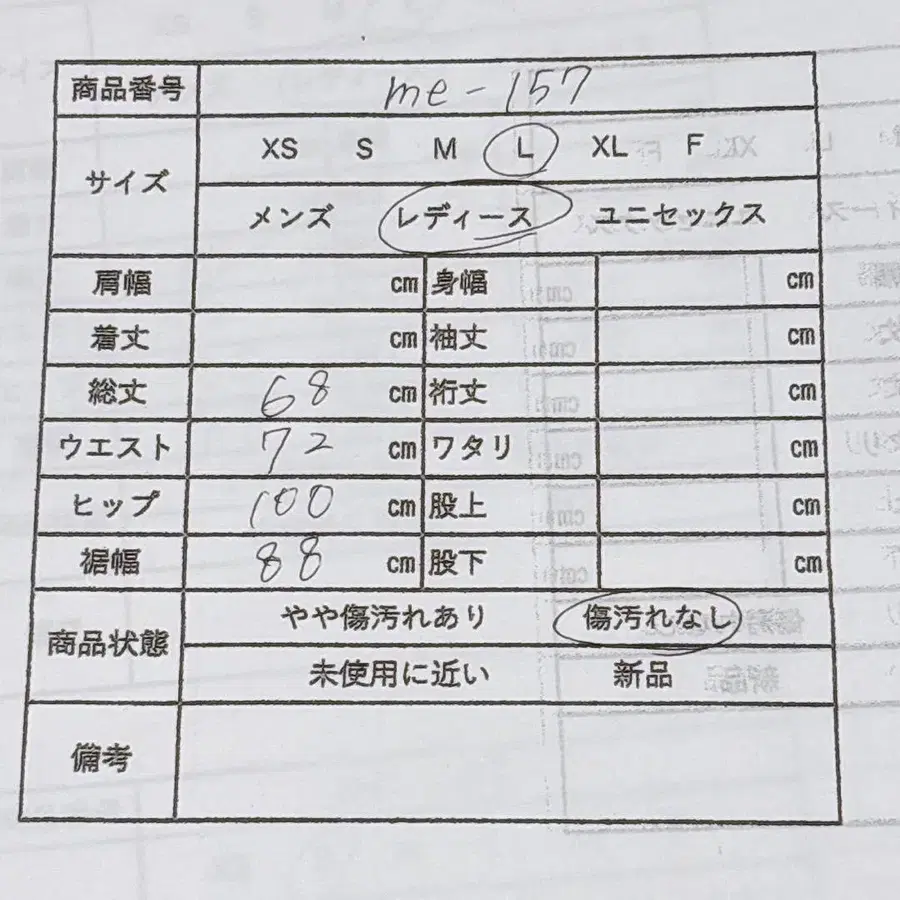 商品番号 me-157
サイズ XS S M L XL F
メンズ レディース ユニセックス
肩幅 cm 身幅 cm
着丈 cm 袖丈 cm
総丈 68 cm 裄丈 cm
ウエスト 72 cm ワタリ cm
ヒップ 100 cm 股上 cm
裾幅 88 cm 股下 cm
商品状態 やや傷汚れあり 傷汚れなし
未使用に近い 新品
備考